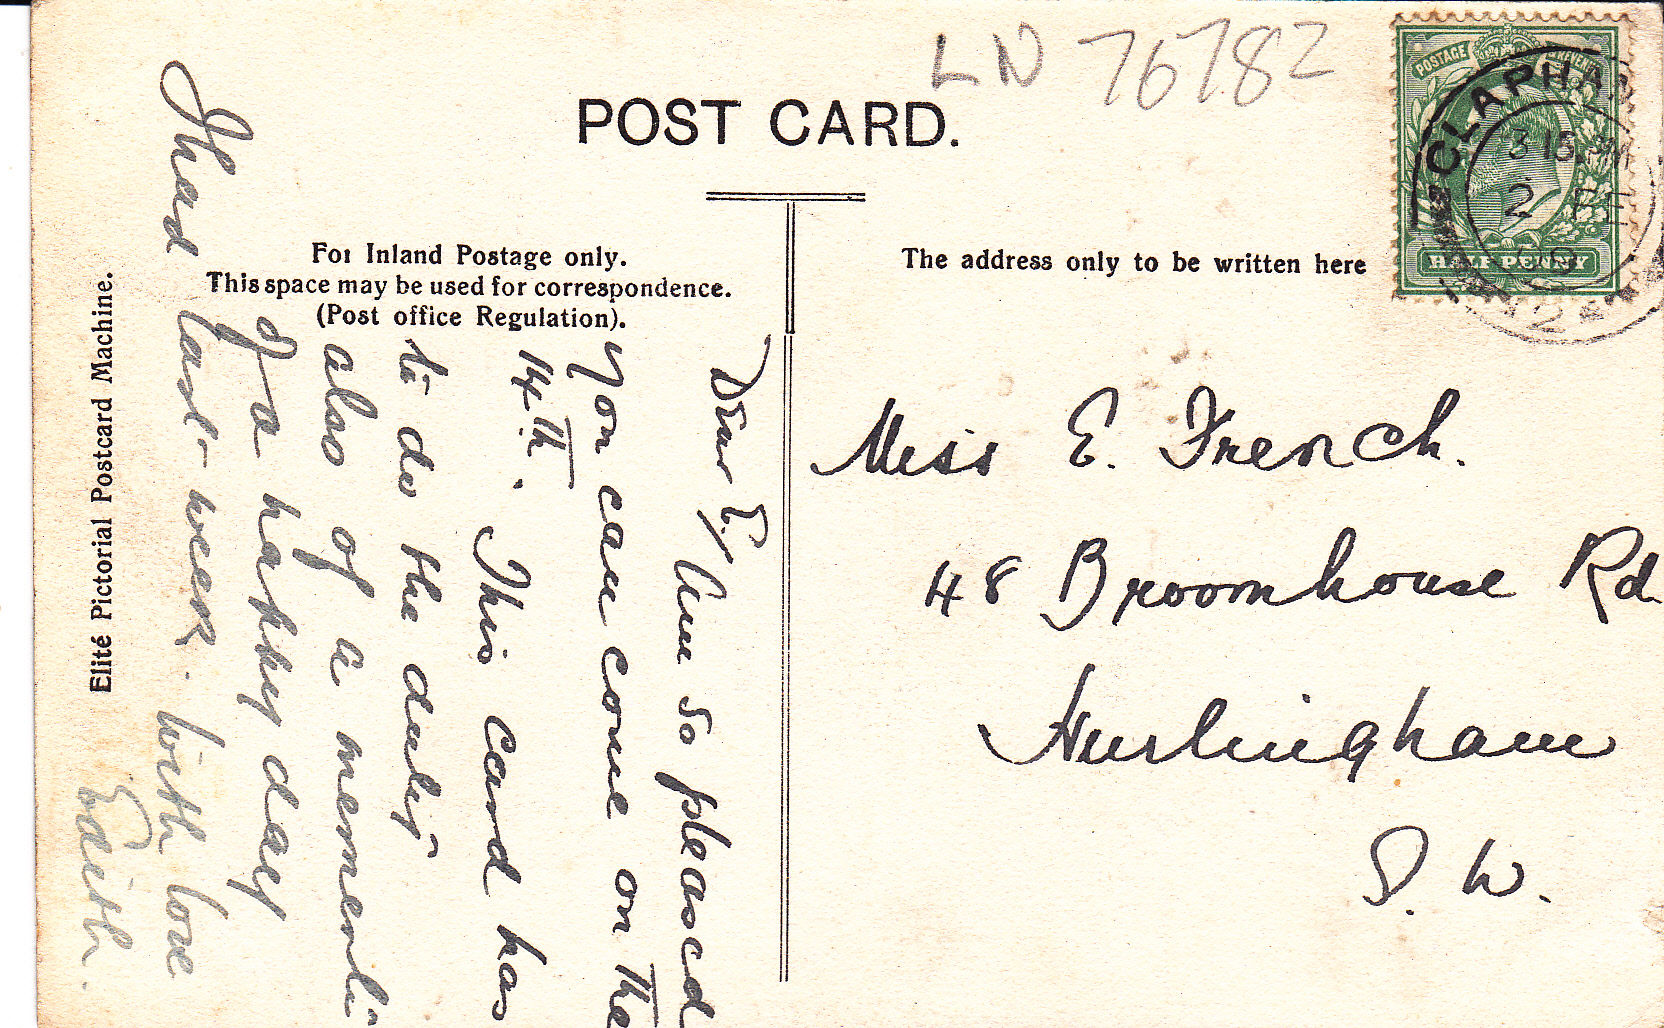 LN 76782
POST CARD.
For Inland Postage only.
This space may be used for correspondence.
(Post office Regulation).
The address only to be written here
Elité Pictorial Postcard Machine.
POSTAGE
HALF PENNY
CLAPHA
3 15 PM
2 FE
Dear E/
Am so pleased
you can come on the
14th. This card has
to do the duty
also of a memento
of a happy day
I had last week. With love
Edith.
Miss E. French.
48 Broomhouse Rd
Hurlingham
S. W.